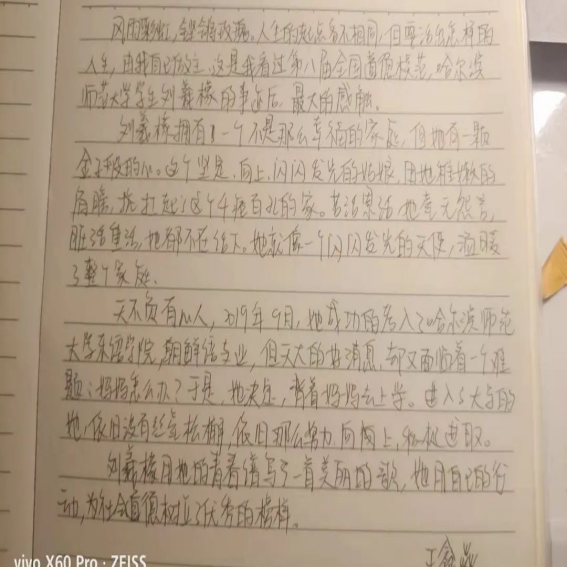 风雨彩虹,铿锵玫瑰。人生的起点各不相同,但要活出怎样的
人生,由我自己做主。这是我看过第八届全国道德模范,哈尔滨
师范大学学生刘羲檬的事迹后,最大的感触。
刘羲檬拥有了一个不是那么幸福的家庭,但她有一颗
金子般的心。这个坚定、向上、闪闪发光的姑娘,用她稚嫩的
肩膀,扛起了这个千疮百孔的家。苦活累活她毫无怨言,
脏活重活,她都不在话下。她就像一个闪闪发光的天使,温暖
了整个家庭。
天不负有心人,2019年9月,她成功的考入了哈尔滨师范
大学东语学院,朝鲜语专业,但天大的好消息,却又面临着一个难
题:妈妈怎么办?于是,她决定,背着妈妈去上学。进入了大学的
她,依旧没有丝毫松懈,依旧那么努力向上,积极进取。
刘羲檬用她的青春谱写了一首美丽的歌,她用自己的行
动,为社会道德树立了优秀的榜样。
vivo X60 Pro · ZEISS